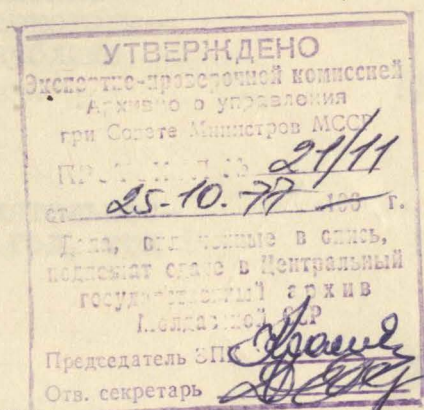 УТВЕРЖДЕНО
Экспертно-проверочной комиссией
Архивного управления
при Совете Министров МССР
ПРОТОКОЛ № 21/11
от 25-10-77 г.
Дела, включенные в опись,
подлежат сдаче в Центральный
государственный архив
Молдавской ССР
Председатель ЭПК
Отв. секретарь